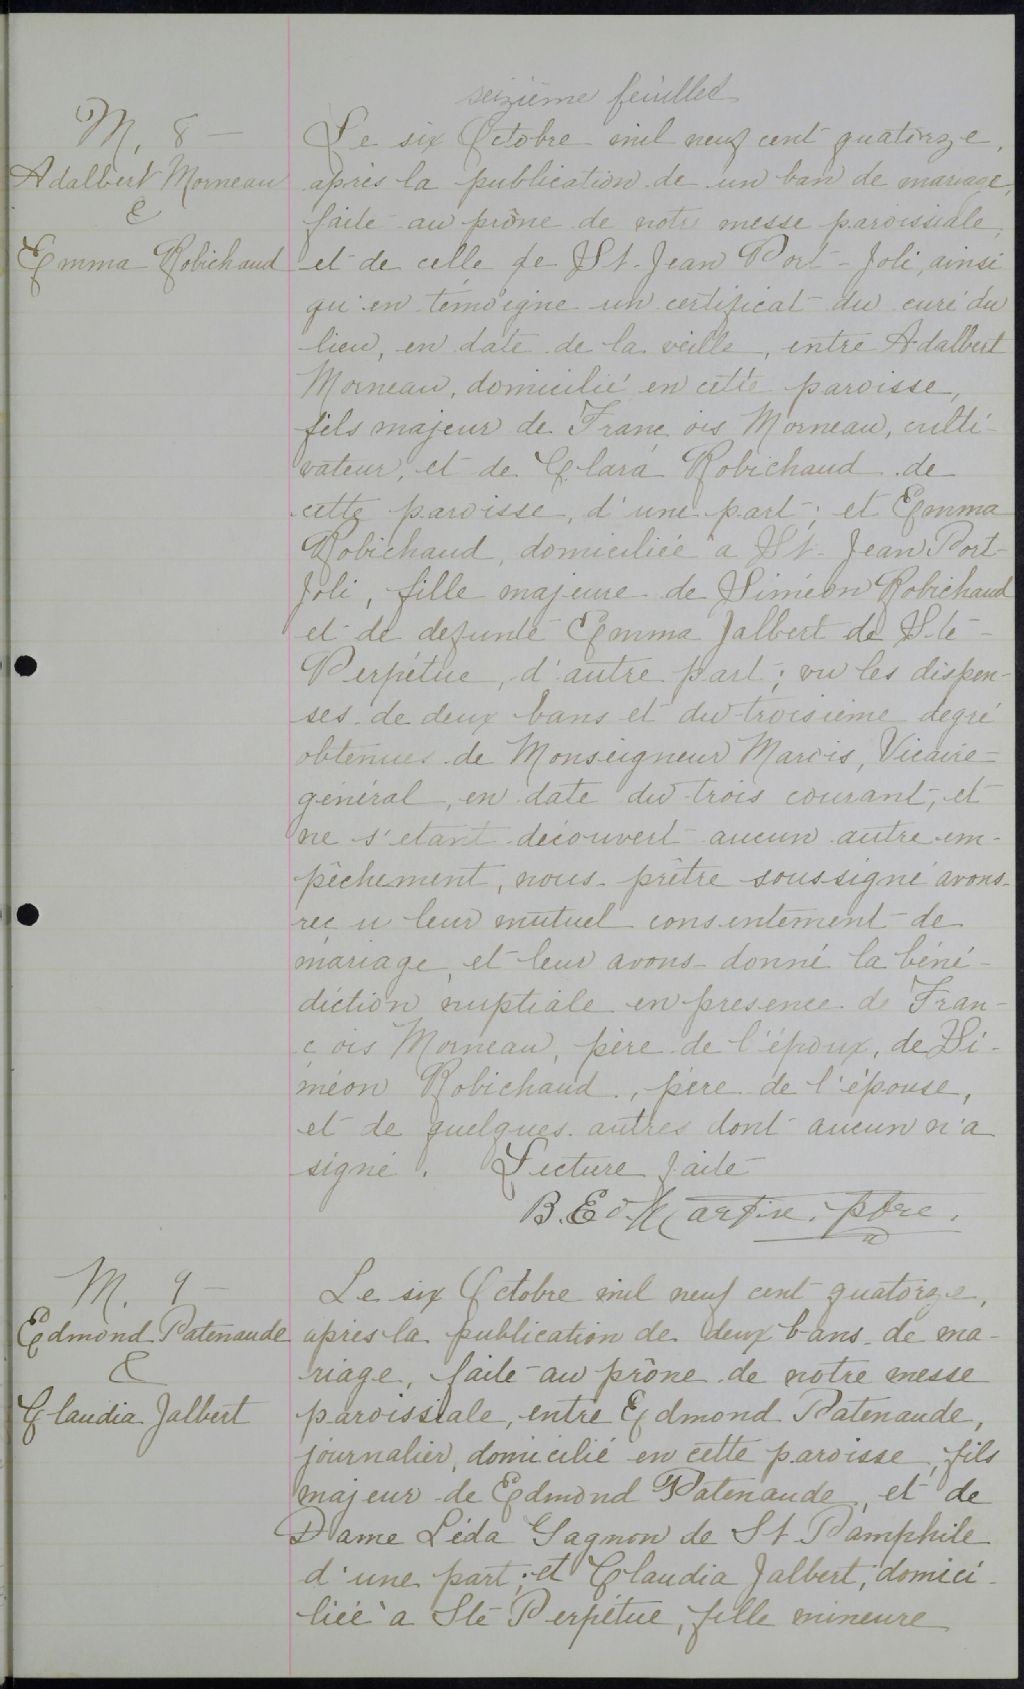 seizième feuillet
M. 8 —
Adalbert Morneau
&
Emma Robichaud
Le six Octobre mil neuf cent quatorze,
après la publication de un ban de mariage,
faite au prône de notre messe paroissiale,
et de celle de St. Jean Port-Joli, ainsi
qu'en témoigne un certificat du curé du
lieu, en date de la veille, entre Adalbert
Morneau, domicilié en cette paroisse,
fils majeur de François Morneau, culti-
vateur, et de Clara Robichaud de
cette paroisse, d'une part; et Emma
Robichaud, domiciliée à St. Jean Port-
Joli, fille majeure de Siméon Robichaud
et de defunte Emma Jalbert de Ste-
Perpétue, d'autre part; vu les dispen-
ses de deux bans et du troisième degré
obtenues de Monseigneur Marois, Vicaire-
général, en date du trois courant, et
ne s'étant découvert aucun autre em-
pêchement, nous prêtre soussigné avons
reçu leur mutuel consentement de
mariage, et leur avons donné la béné-
diction nuptiale en présence de Fran-
çois Morneau, père de l'époux, de Si-
méon Robichaud, père de l'épouse,
et de quelques autres dont aucun n'a
signé. Lecture faite
B. Ed. Martin, ptre.
M. 9 —
Edmond Patenaude
&
Claudia Jalbert
Le six Octobre mil neuf cent quatorze,
après la publication de deux bans de ma-
riage, faite au prône de notre messe
paroissiale, entre Edmond Patenaude,
journalier, domicilié en cette paroisse, fils
majeur de Edmond Patenaude, et de
Dame Léda Gagnon de St Pamphile
d'une part; et Claudia Jalbert, domici-
liée à Ste Perpétue, fille mineure